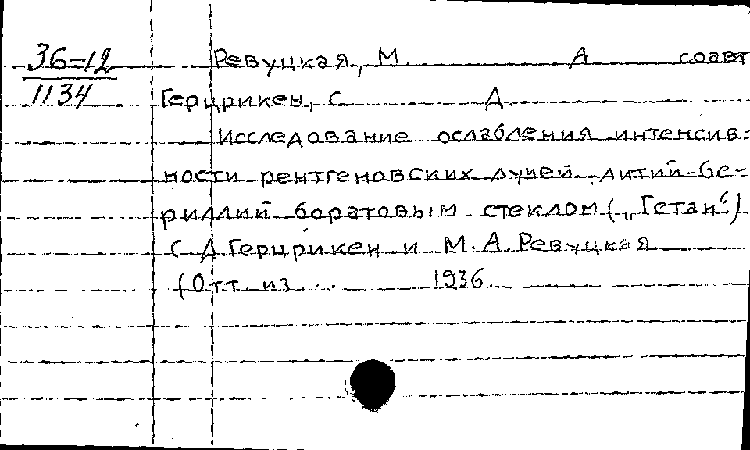 36=12
1134
Ревуцкая, М. А соавт
Герцрикен, С Д
Исследование ослабления интенсив-
ности рентгеновских лучей литий-бе-
риллий боратовым стеклом („Гетан“)
С Д. Герцрикен и М. А. Ревуцкая
(Отт. из ... 1936